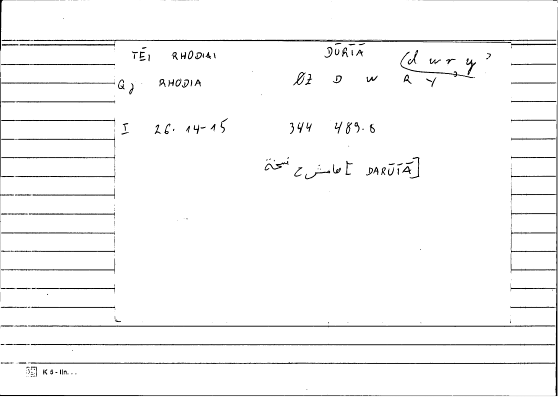 TĒI RHODIAI DŪRĪĀ (d w r y ʾ
Qz RHODIA ØZ D W R Y ʾ
I 26. 14-15 344 489.8
هامش ح نسخة [DARŪTĀ]
K 5 - lin...